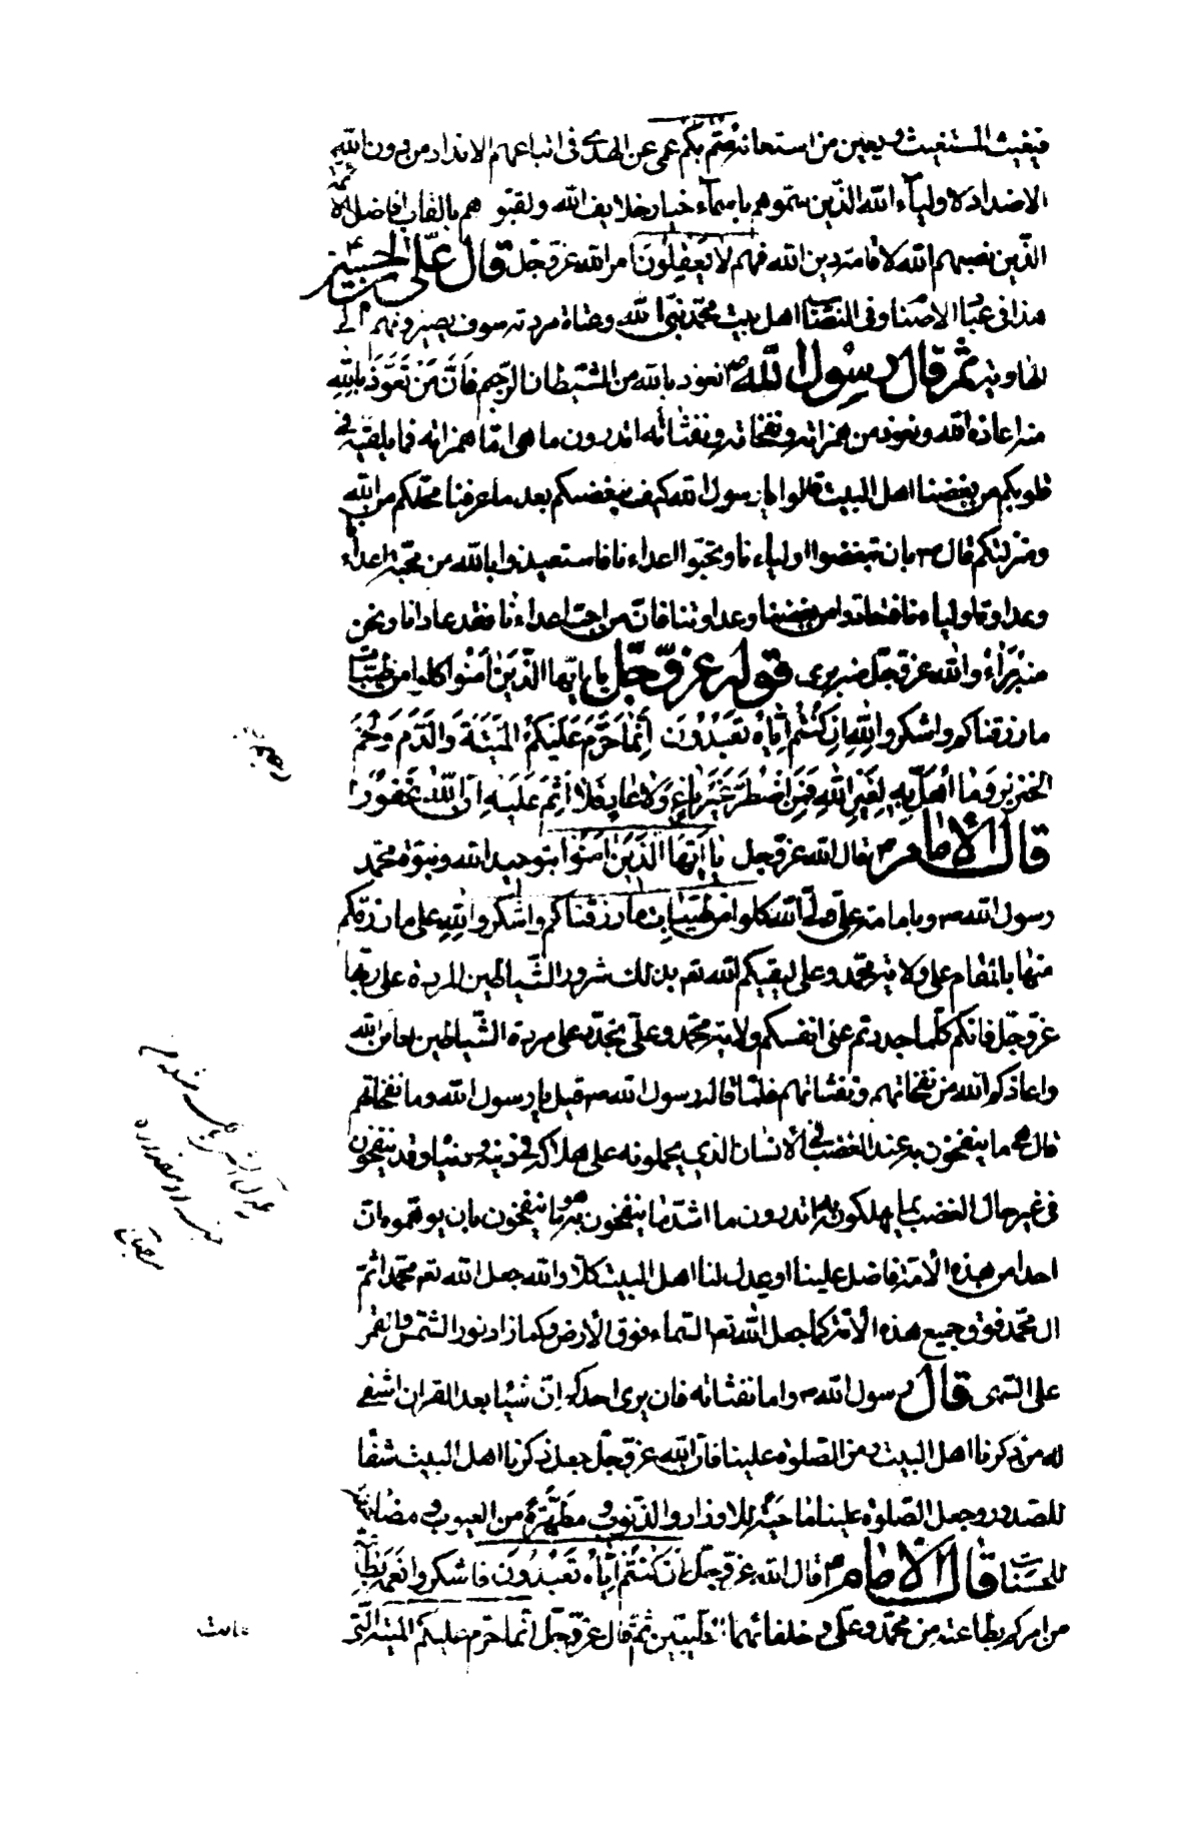 فيغيث المستغيث ويعين من استعانه صم بكم عمى عن الهدى فى اتباعهم الانداد من دون الله
الاضداد لاولياء الله الذين سموهم باسماء خيار خلايف الله ولقبوهم بالقاب افاضل الائمة
الذين نصبهم الله لاقامة دين الله فهم لا يعقلون امر الله عز وجل قال على بن الحسين ع
هذا فى عباد الاصنام وفى النصاب اهل بيت محمد نبى الله وعتاة مردته سوف يصيرونهم الى
الهاوية ثم قال رسول الله ص نعوذ بالله من الشيطان الرجيم فان من تعوذ بالله
منه اعاذه الله ونعوذ من همزاته ونفخاته ونفثاته اتدرون ما هى اما همزاته فما يلقيه فى
قلوبكم من بغضنا اهل البيت قالوا يا رسول الله كيف نبغضكم بعد ما عرفنا محلكم من الله
ومنزلتكم قال ص بان تبغضوا اولياءنا وتحبوا اعداءنا فاستعيذوا بالله من محبة اعدائنا
وعداوة اوليائنا فتعاذوا من بغضنا وعداوتنا فان من احب اعداءنا فقد عادانا ونحن
منه براء والله عز وجل منه برى قوله عز وجل يا ايها الذين امنوا كلوا من طيبات
ما رزقناكم واشكروا لله ان كنتم اياه تعبدون انما حرم عليكم الميتة والدم ولحم
الخنزير وما اهل به لغير الله فمن اضطر غير باغ ولا عاد فلا اثم عليه ان الله غفور
قال الامام ع قال الله عز وجل يا ايها الذين امنوا بتوحيد الله ونبوة محمد
رسول الله ص وبامامة على ولى الله كلوا من طيبات ما رزقناكم واشكروا لله على ما رزقكم
منها بالمقام على ولاية محمد وعلى ليقيكم الله تعم بذلك شرور الشياطين المردة على ربها
عز وجل فانكم كلما جددتم على انفسكم ولاية محمد وعلى تجدد على مردة الشياطين لعاين الله
واعاذكم الله من نفخاتهم ونفثاتهم فلما قاله رسول الله ص قيل يا رسول الله وما نفخاتهم
قال هى ما ينفخون به عند الغضب فى الانسان الذى يحملونه على هلاكه فى دينه ودنياه وقد ينفخون
فى غير حال الغضب بما يهلكون به اتدرون ما اشد ما ينفخون به هو ما ينفخون بان يوهموه ان
احدا من هذه الامة فاضل علينا او عدل لنا اهل البيت كلا والله جعل الله تعم محمدا ثم
ال محمد فوق جميع هذه الامة كما جعل الله تعم السماء فوق الارض وكما زاد نور الشمس والقمر
على السهى قال رسول الله ص واما نفثاته فان يرى احدكم ان شيئا بعد القران اشفى
له من ذكرنا اهل البيت ومن الصلوة علينا فان الله عز وجل جعل ذكرنا اهل البيت شفا
للصدور وجعل الصلوة علينا ماحية للاوزار والذنوب ومطهرة من العيوب ومضاعفة
للحسنات قال الامام ع قال الله عز وجل ان كنتم اياه تعبدون فاشكروا نعمة الله بطاعة
من امركم بطاعته من محمد وعلى وخلفائهما الطيبين ثم قال عز وجل انما حرم عليكم الميتة التى
ماتت